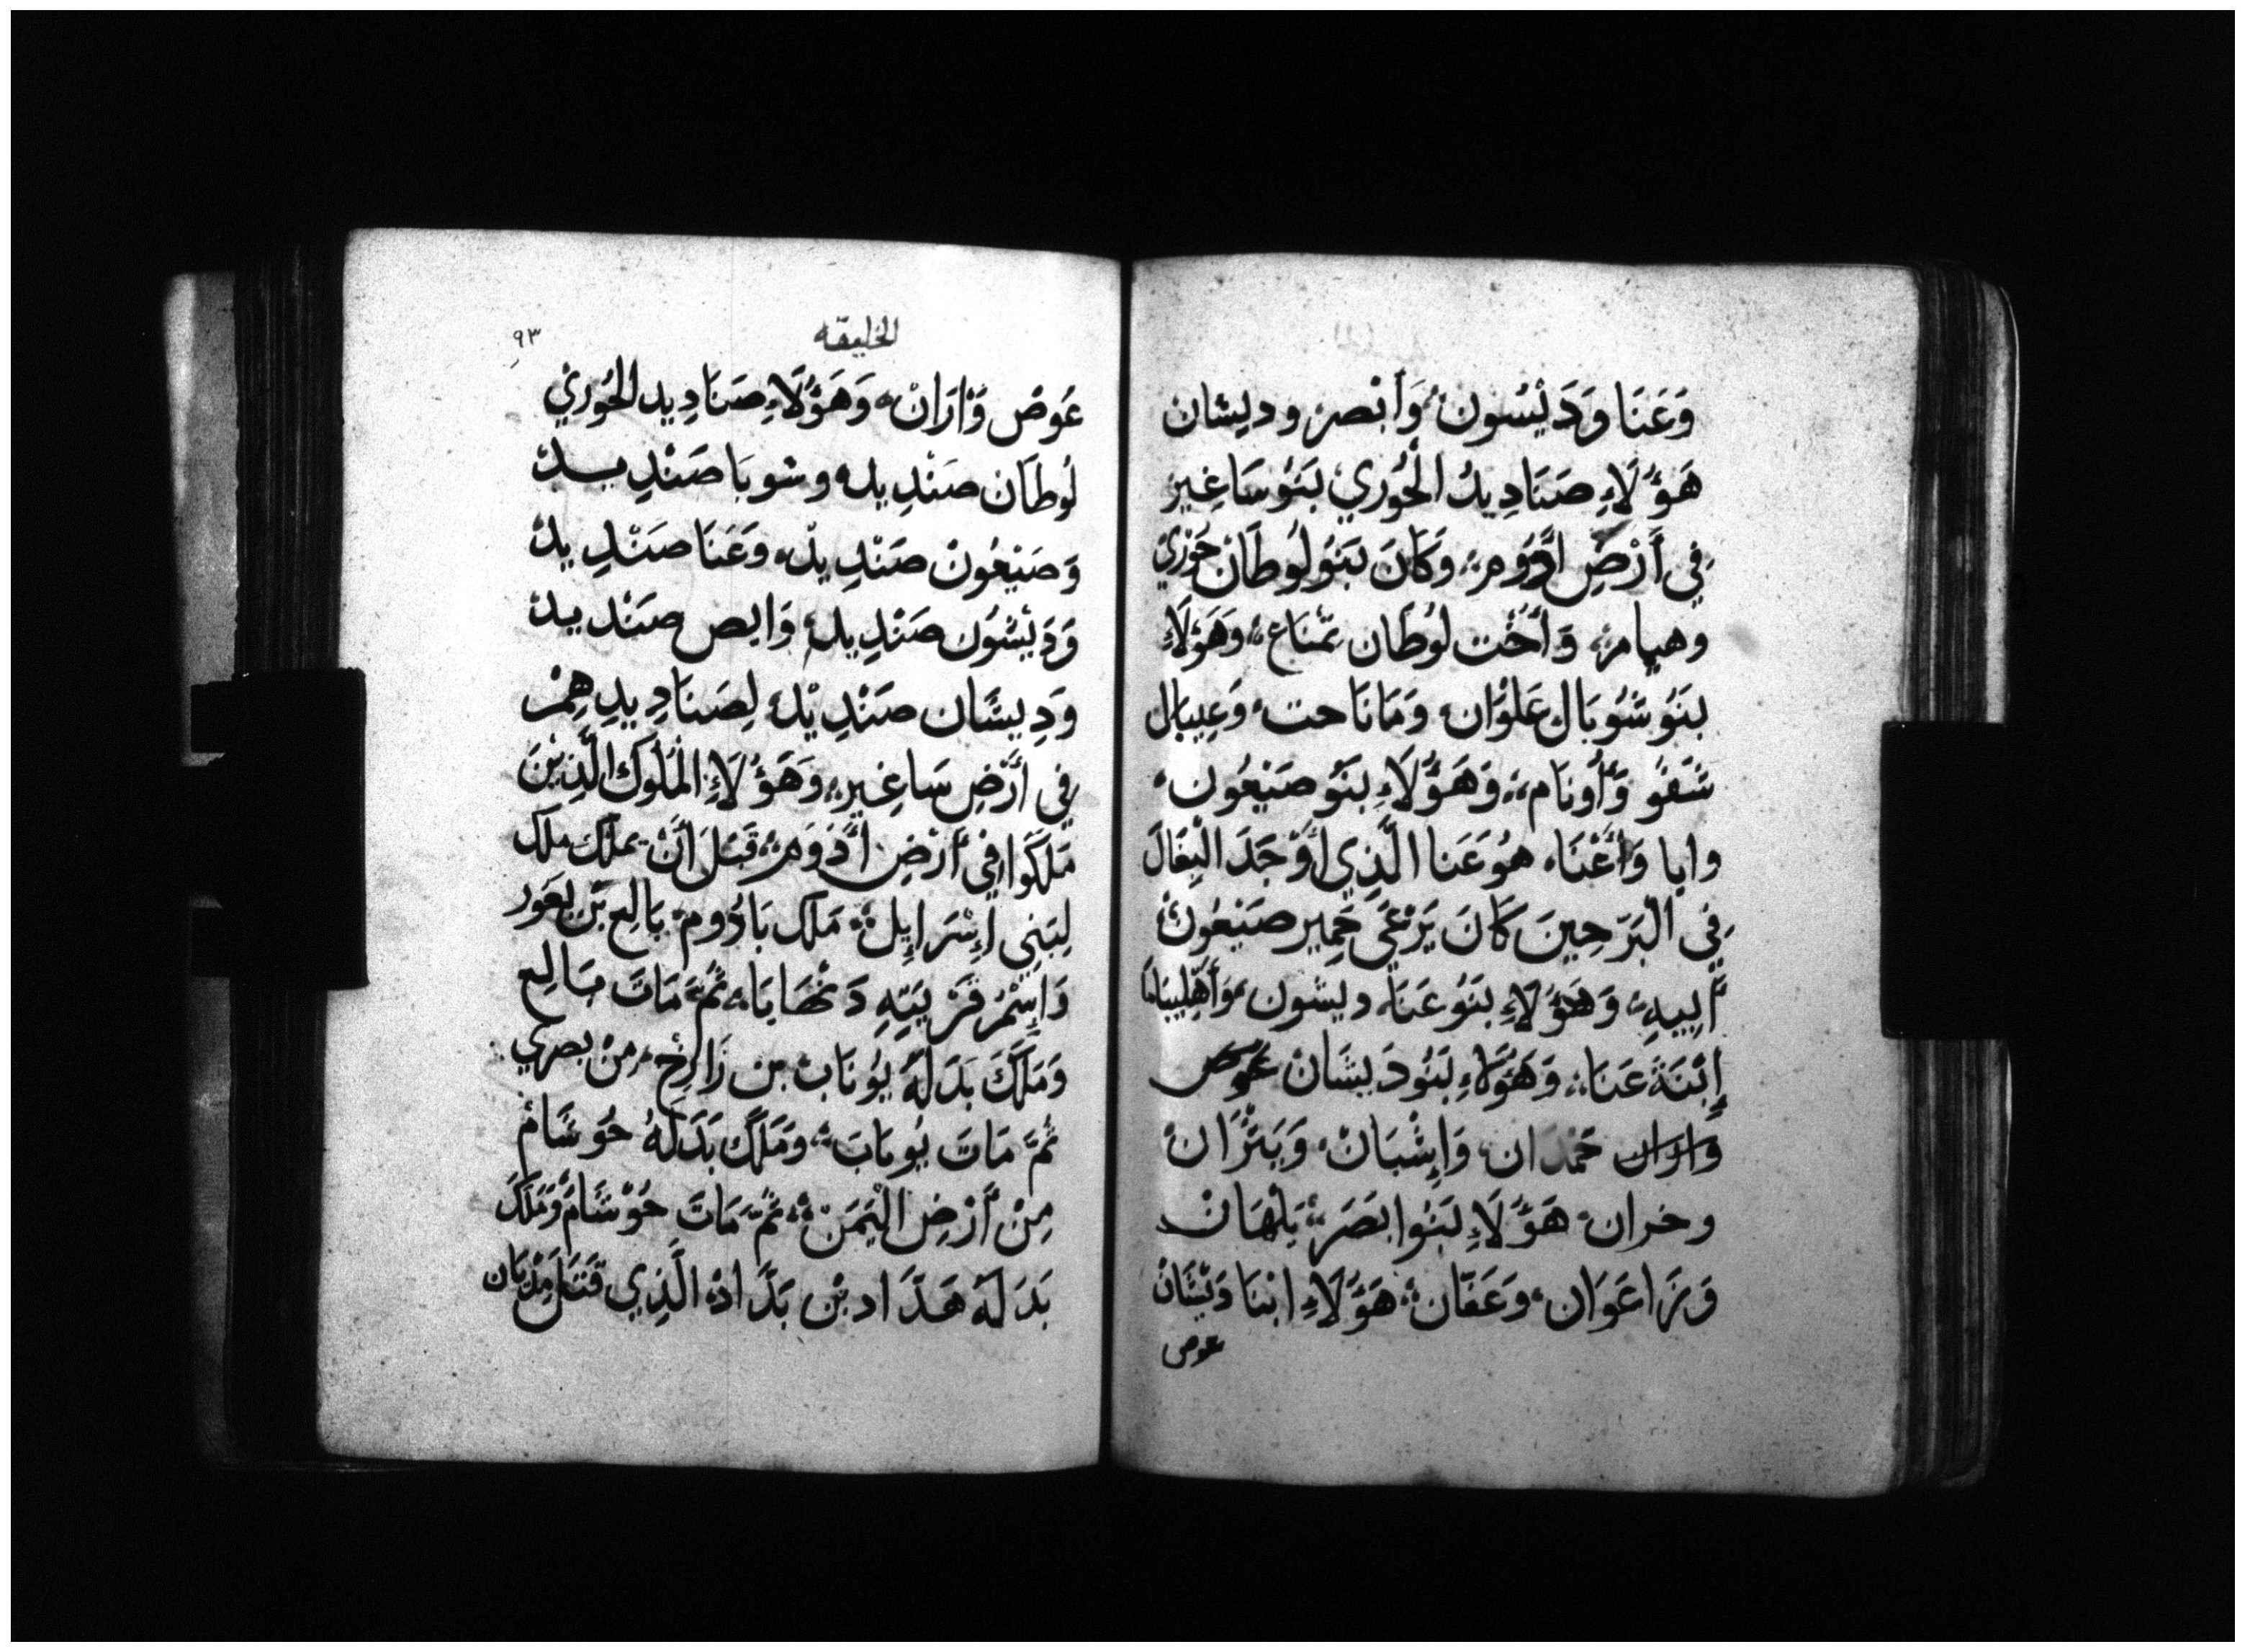 وَعَنَا وَدَيْسُون وَأَبْصر وديشان
هَؤُلَاءِ صَنَادِيدُ الْحُوري بَنُو سَاغِير
فِي أَرْضِ ادُّوم وَكَانَ بَنَو لُوطَانْ حَوْرِي
وهيامر وَأُخْت لوُطَان تمّنَاع وَهَؤلَاءِ
بنَوُ شُوبَال عَلوَان وَمَانَاحت وَعِيبال
شَفُو وَأُونَام وَهَؤُلَاءِ بَنُو صَنِيعُون
وايا وَأَعْنَا هوُ عَنا الَّذِي أَوْجَدَ الْبِغَالَ
فِي الْبَرّ حِينَ كَانَ يَرْعَي حَمِير صَنِيعُونْ
أَبِيهِ وَهَؤُلَاءِ بَنُو عَنَا ديشون وَأَهْلِيبَامَا
إِبْنَةَ عَنَا وَهَؤُلَاءِ بَنُو دَيشَانْ عَوص
وَاران حَمْدَان وَإِشْبَانْ وَبَتْرَانْ
وخران هَؤُلَاءِ بَنوا بَصَر بَلْهَانْ
وَزَاعَوَان وَعَقّان هَؤُلَاءِ ابْنَا دَيْشَانْ
عوص
الخليقه
٩٣
عَوصْ وَأرَانْ وَهَؤُلَاءِ صَنَادِيد الحُورِيْ
لُوطَان صَنْدِيد وشوبَا صَنْدِيد
وَصَنِيعُونْ صَنْدِيدْ وَعَنَا صَنْدِيدْ
وَدَيْشُون صَنْدِيد وَابص صَنْديدْ
وَدِيشَان صَنْدِيْد لِصَنَادِيدِهِمْ
فِي أَرْضِ سَاغِير وَهَؤُلَاءِ الْمُلُوك الَّذِيْنَ
مَلَكُوا فِي أَرْضِ أَدَوَمِ قَبْل أَنْ يملك ملك
لِبَنِي إِسْرَإِيل مَلَك بَادُوم بَالِع بْن بِعَور
وَإِسْمُ قَرْيَتِهِ دَنْهَابَا ثُمَّ مَاتَ بَالِع
وَمَلَكَ بَدَلَهُ يُونَابْ بن زَارِخ مِنْ بصري
ثُمَّ مَاتَ يُوبَابَ وَمَلَك بَدَلَهُ حُوشَامْ
مِنْ أَرْضِ الْيَمَن ثُمَّ مَاتَ حُوْشَامُ وَمَلَكَ
بَدَلَهُ هَدَاد بْن بَدَادْ الَّذِي قَتَل مِدْيَان